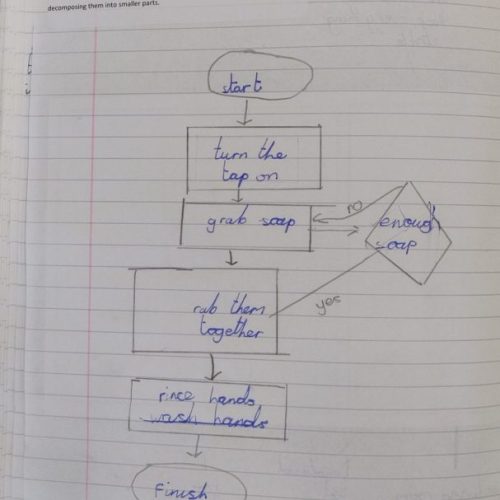 decomposing them into smaller parts.
start
turn the
tap on
grab soap
no
enough
soap
yes
rub them
together
rince hands
wash hands
Finish